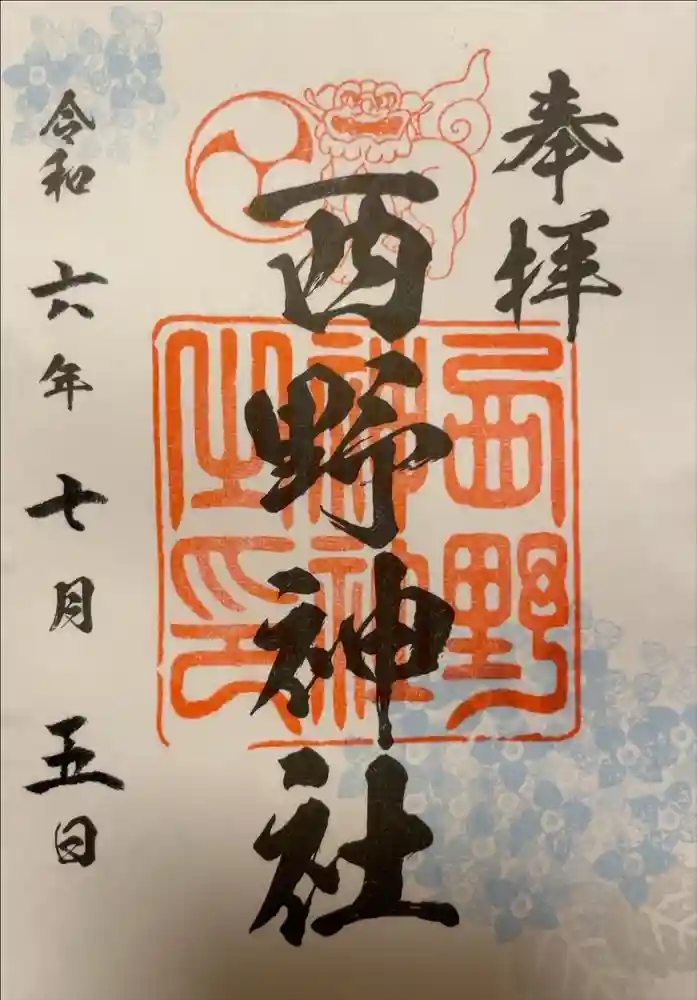 奉拝
西野神社
西野
神社
之印
令和六年七月五日